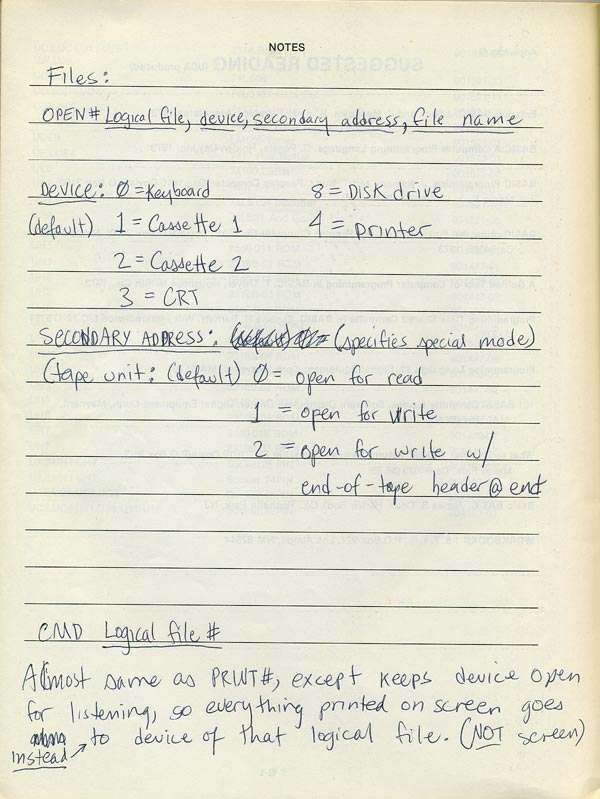 NOTES
Files:
OPEN# Logical file, device, secondary address, file name
DEVICE: 0 = Keyboard 8 = DISK drive
(default) 1 = Cassette 1 4 = printer
2 = Cassette 2
3 = CRT
SECONDARY ADDRESS: (specifies special mode)
(tape unit: (default) 0 = open for read
1 = open for write
2 = open for write w/
end-of-tape header @ end
CMD Logical file #
Almost same as PRINT#, except keeps device open
for listening, so everything printed on screen goes
instead to device of that logical file. (NOT screen)